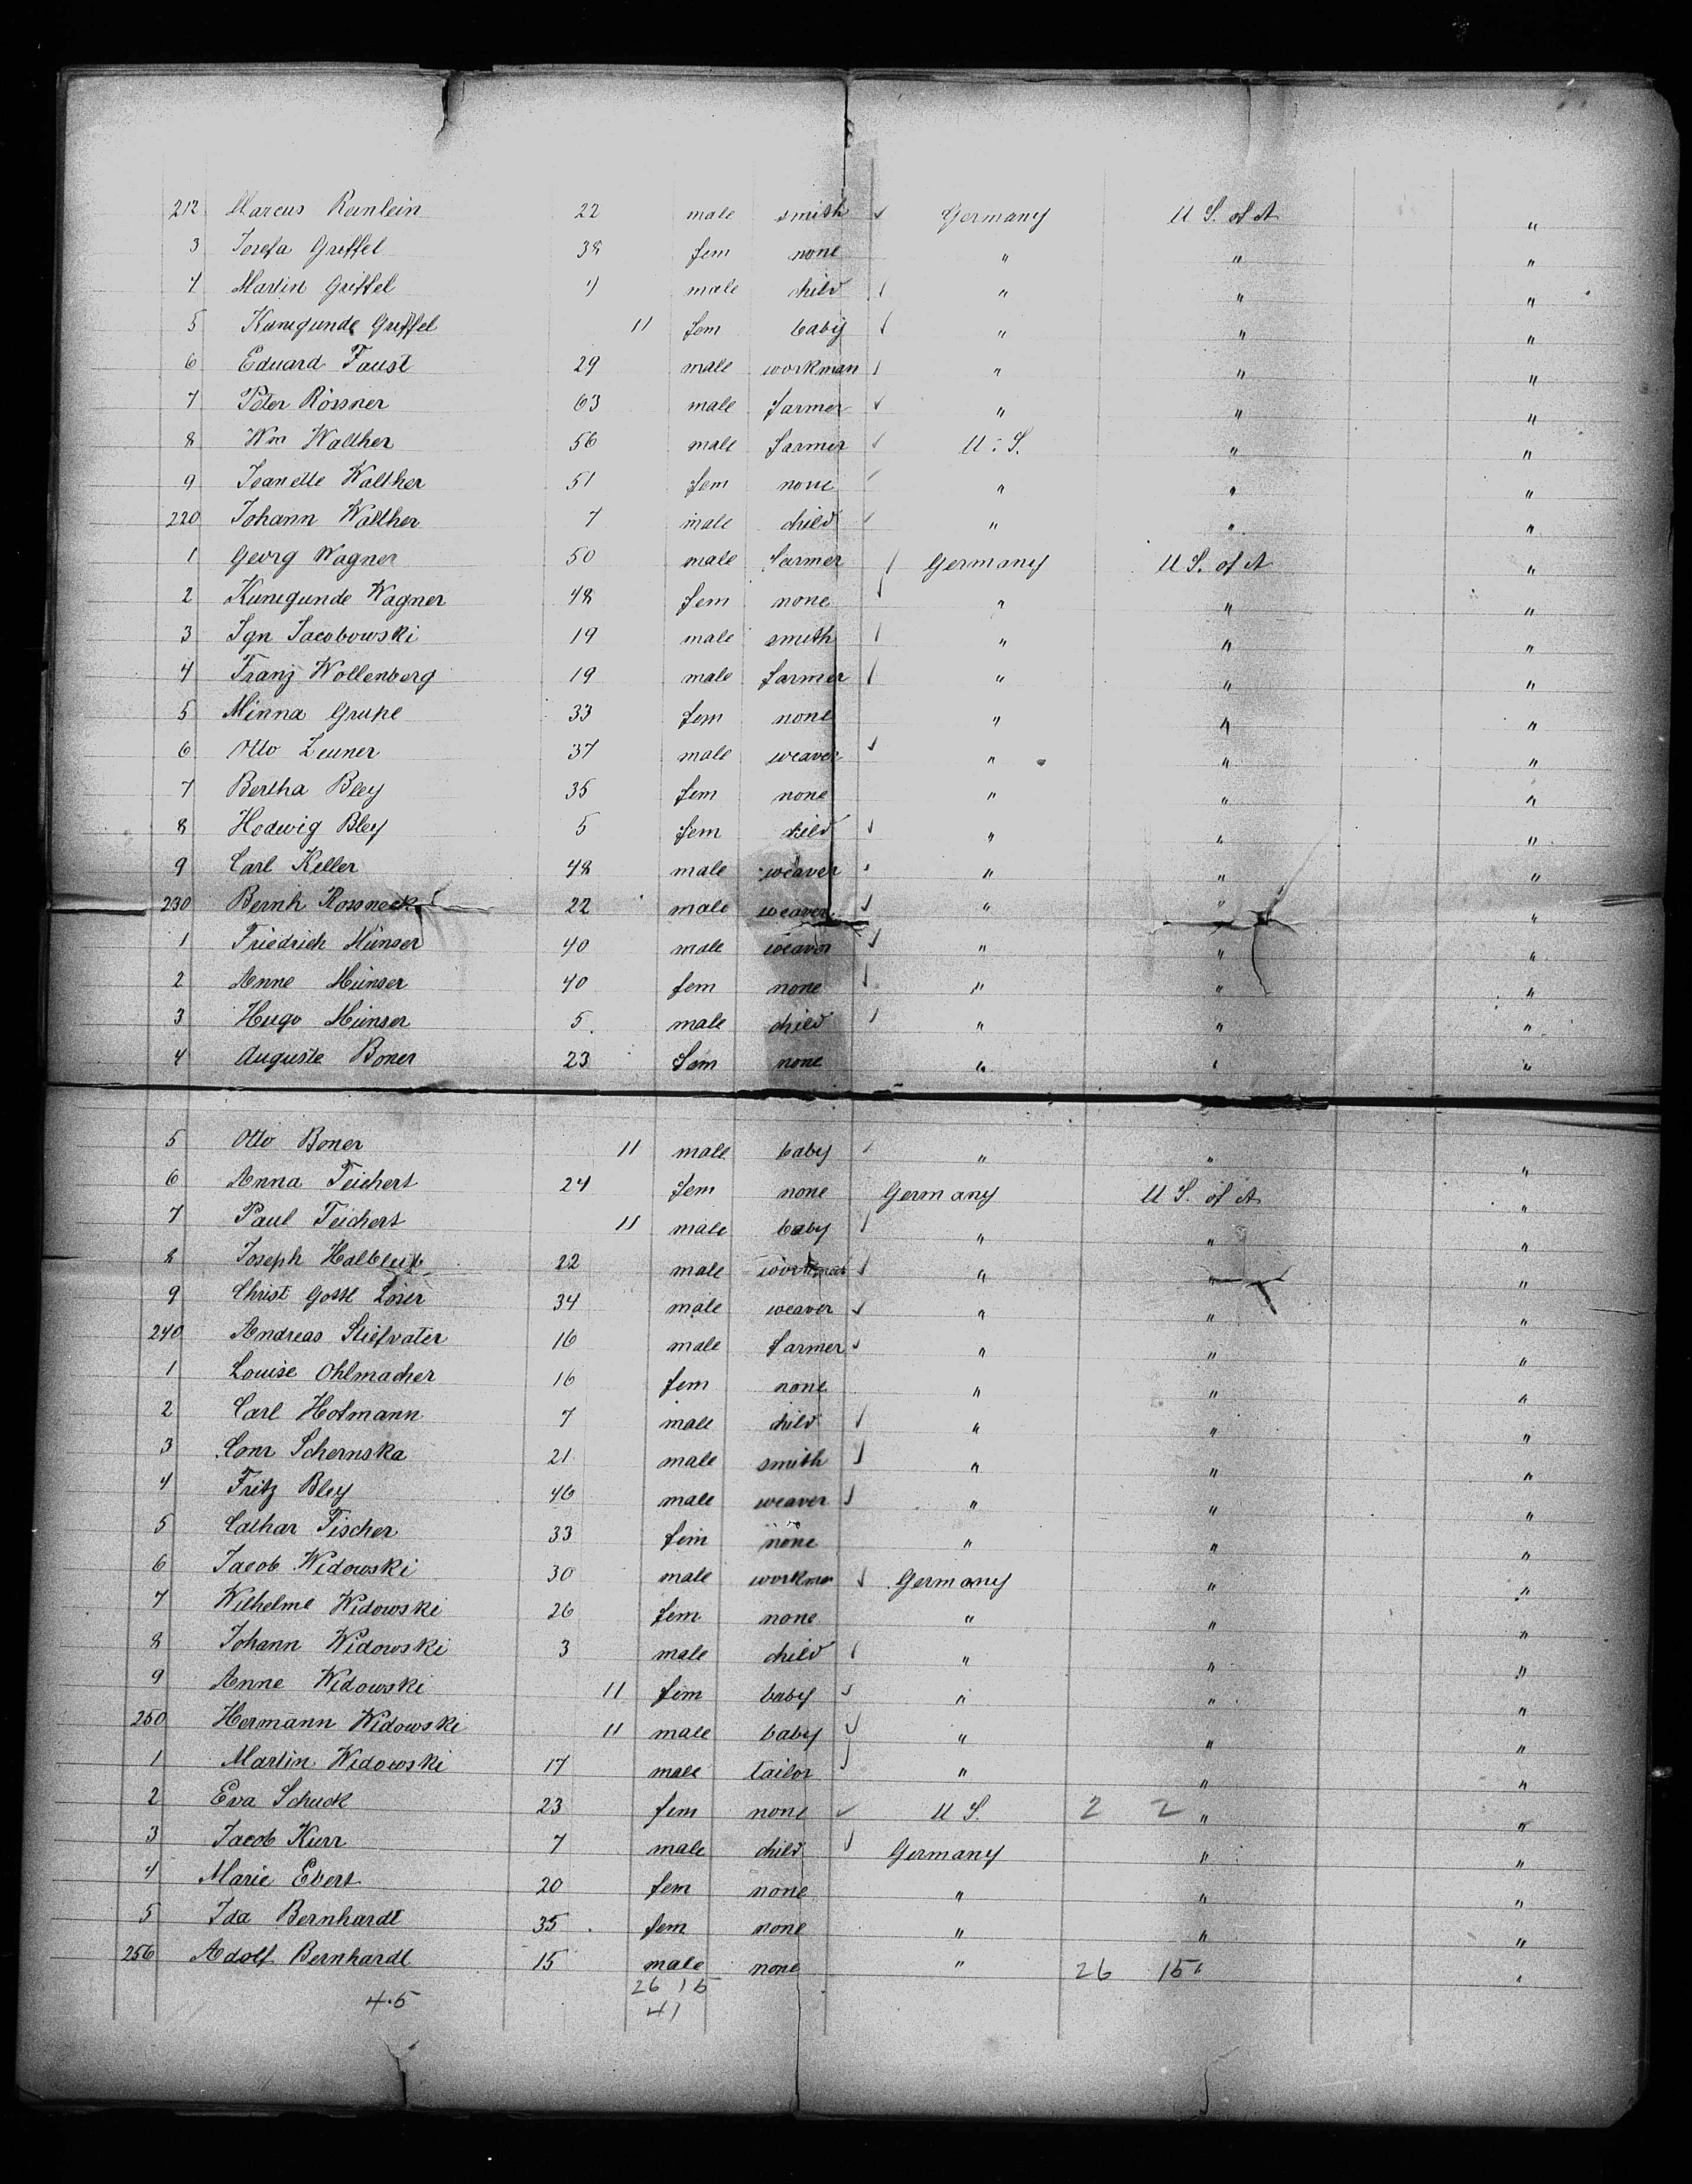 212 Marcus Reinlein 22 male smith ✓ Germany U S. of A "
3 Josefa Griffel 38 fem none " " "
4 Martin Griffel 4 male child ✓ " " "
5 Kunegunde Griffel 11 fem baby ✓ " " "
6 Eduard Faust 29 male workman ✓ " " "
7 Peter Rössner 63 male farmer ✓ " " "
8 Wm Walther 56 male farmer ✓ U. S. " "
9 Jeanette Walther 51 fem none ✓ " " "
220 Johann Walther 7 male child ✓ " " "
1 Georg Wagner 50 male farmer ✓ Germany U S. of A "
2 Kunegunde Wagner 48 fem none ✓ " " "
3 Ign Jacobowski 19 male smith ✓ " " "
4 Franz Wollenberg 19 male farmer ✓ " " "
5 Minna Grupe 33 fem none " " "
6 Otto Zeuner 37 male weaver ✓ " " "
7 Bertha Bley 35 fem none " " "
8 Hedwig Bley 5 fem child ✓ " " "
9 Carl Keller 48 male weaver ✓ " " "
230 Bernh Rossneck 22 male weaver ✓ " " "
1 Friedrich Münser 40 male weaver ✓ " " "
2 Anne Münser 40 fem none ✓ " " "
3 Hugo Münser 5 male child ✓ " " "
4 Auguste Boner 23 fem none " " "
5 Otto Boner 11 male baby ✓ " " "
6 Anna Teichert 24 fem none Germany U S. of A "
7 Paul Teichert 11 male baby ✓ " " "
8 Joseph Halbleib 22 male workman ✓ " " "
9 Christ Gottl Löser 34 male weaver ✓ " " "
240 Andreas Stiefvater 16 male farmer ✓ " " "
1 Louise Ohlmacher 16 fem none " " "
2 Carl Hofmann 7 male child ✓ " " "
3 Conr Schernska 21 male smith ✓ " " "
4 Fritz Bley 46 male weaver ✓ " " "
5 Cathar Fischer 33 fem none " " "
6 Jacob Widowski 30 male workman ✓ Germany " "
7 Wilhelme Widowski 26 fem none " " "
8 Johann Widowski 3 male child ✓ " " "
9 Anne Widowski 11 fem baby ✓ " " "
250 Hermann Widowski 11 male baby ✓ " " "
1 Martin Widowski 17 male tailor ✓ " " "
2 Eva Schuck 23 fem none ✓ U S. 2 2 " "
3 Jacob Kurr 7 male child ✓ Germany " "
4 Marie Ebert 20 fem none " " "
5 Ida Bernhardt 35 fem none " " "
256 Adolf Bernhardt 15 male none " 26 15 " "
26 15
45 41